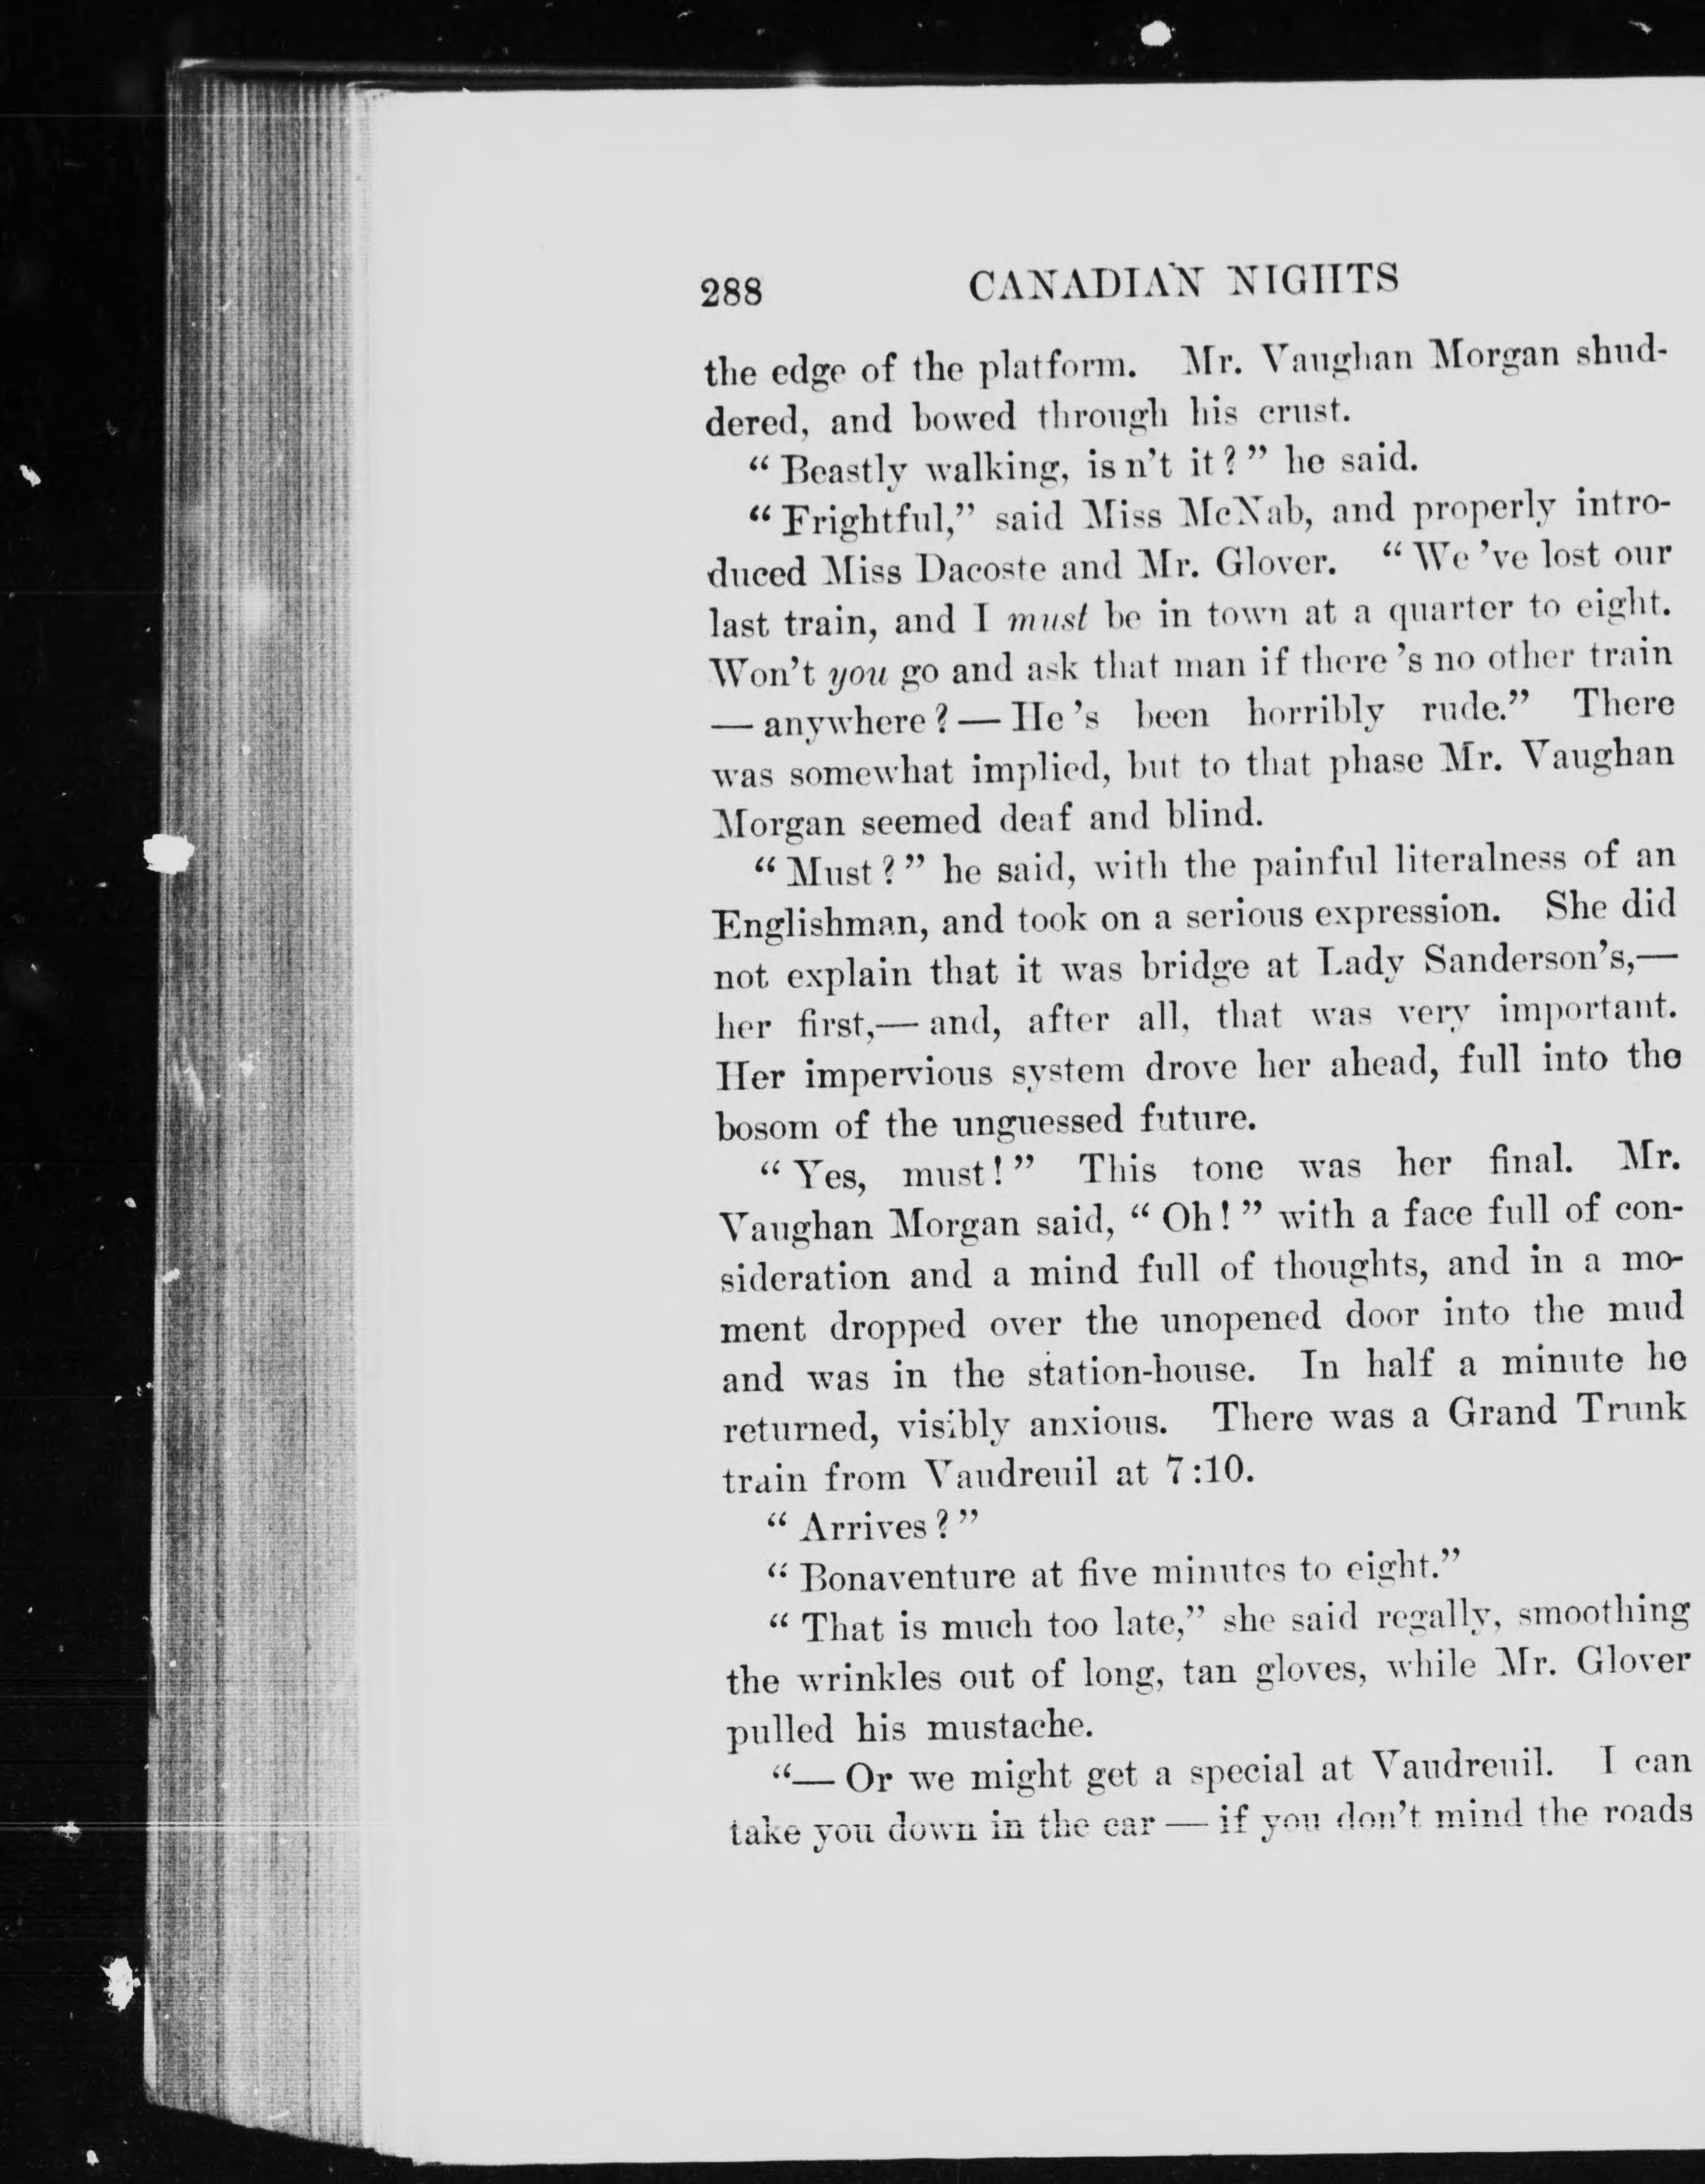 288 CANADIAN NIGHTS
the edge of the platform. Mr. Vaughan Morgan shud-
dered, and bowed through his crust.
“Beastly walking, is n’t it?” he said.
“Frightful,” said Miss McNab, and properly intro-
duced Miss Dacoste and Mr. Glover. “We ’ve lost our
last train, and I must be in town at a quarter to eight.
Won’t you go and ask that man if there ’s no other train
— anywhere? — He ’s been horribly rude.” There
was somewhat implied, but to that phase Mr. Vaughan
Morgan seemed deaf and blind.
“Must?” he said, with the painful literalness of an
Englishman, and took on a serious expression. She did
not explain that it was bridge at Lady Sanderson’s,—
her first,— and, after all, that was very important.
Her impervious system drove her ahead, full into the
bosom of the unguessed future.
“Yes, must!” This tone was her final. Mr.
Vaughan Morgan said, “Oh!” with a face full of con-
sideration and a mind full of thoughts, and in a mo-
ment dropped over the unopened door into the mud
and was in the station-house. In half a minute he
returned, visibly anxious. There was a Grand Trunk
train from Vaudreuil at 7:10.
“Arrives?”
“Bonaventure at five minutes to eight.”
“That is much too late,” she said regally, smoothing
the wrinkles out of long, tan gloves, while Mr. Glover
pulled his mustache.
“— Or we might get a special at Vaudreuil. I can
take you down in the car — if you don’t mind the roads